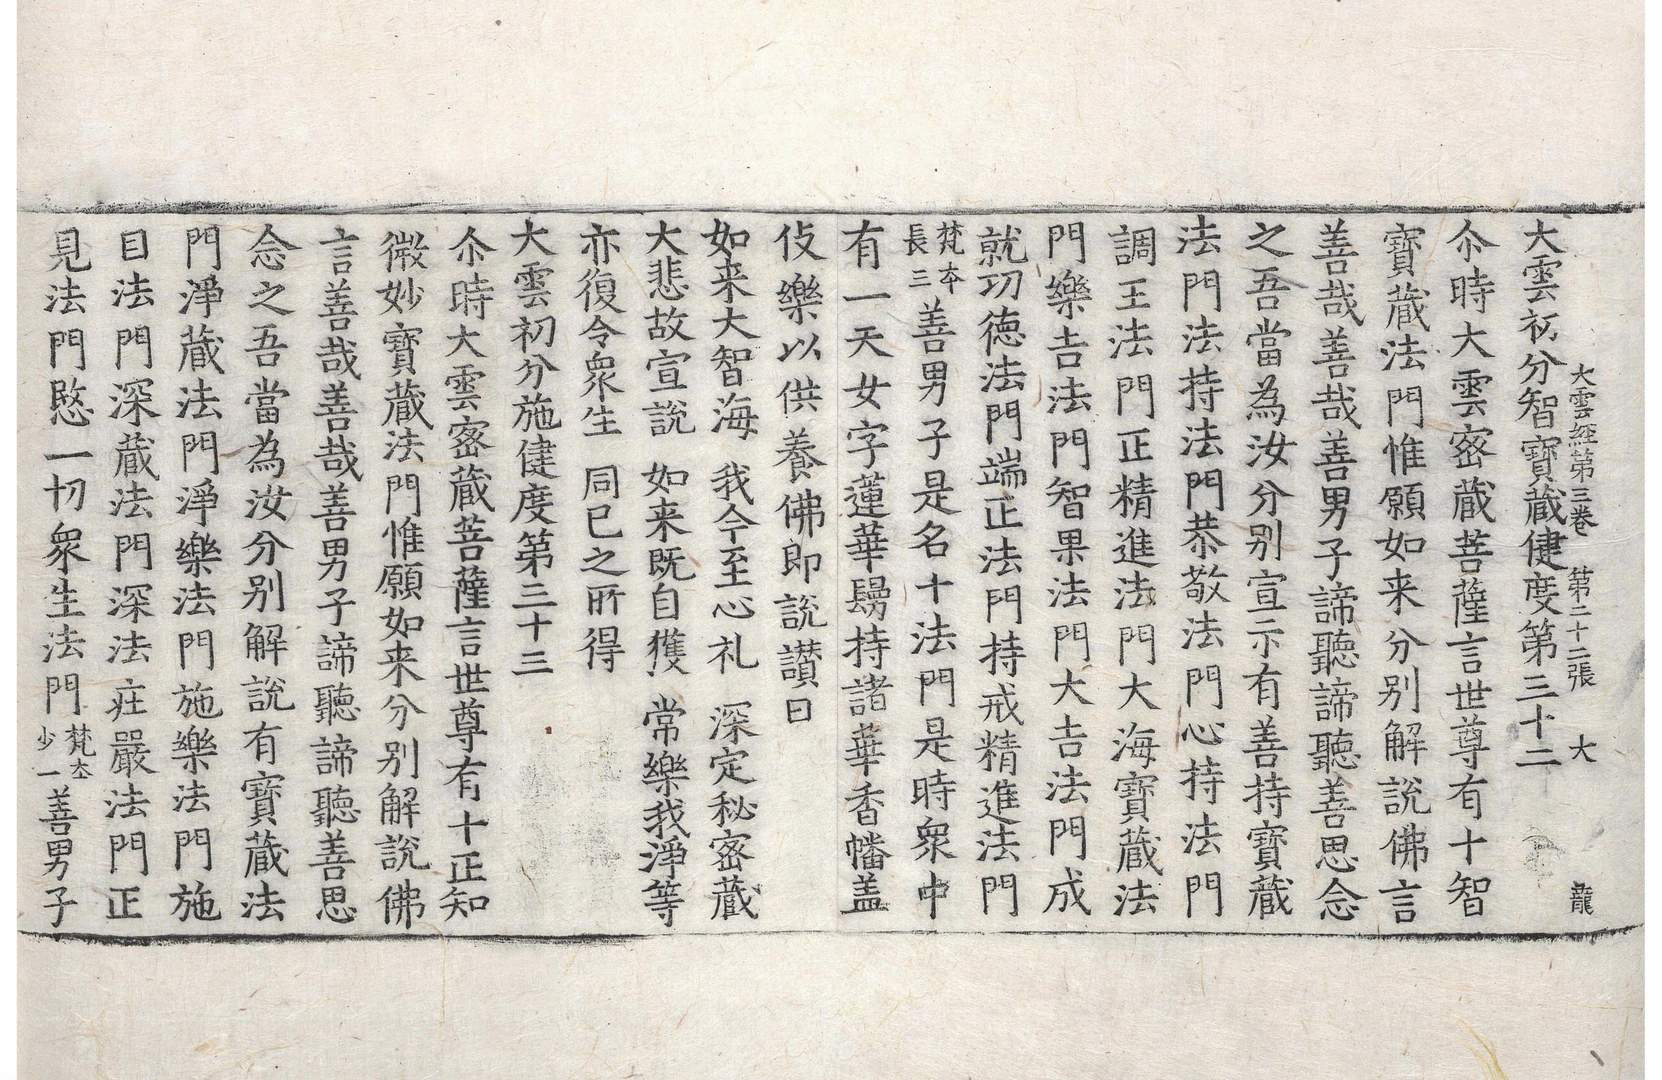 大雲経第三巻 第二十二張 大 龍
大雲初分智寶蔵健度第三十二
尒時大雲密蔵菩薩言世尊有十智
寶蔵法門惟願如来分别解說佛言
善哉善哉善男子諦聽諦聽善思念
之吾當為汝分别宣示有善持寶蔵
法門法持法門恭敬法門心持法門
調王法門正精進法門大海寶蔵法
門樂吉法門智果法門大吉法門成
就功徳法門端正法門持戒精進法門
梵本長三善男子是名十法門是時衆中
有一天女字蓮華鬘持諸華香幡盖
伎樂以供養佛即說讃曰
如来大智海 我今至心礼 深定秘密蔵
大悲故宣說 如来既自獲 常樂我淨等
亦復令衆生 同已之所得
大雲初分施健度第三十三
尒時大雲密蔵菩薩言世尊有十正知
微妙寶蔵法門惟願如来分别解說佛
言善哉善哉善男子諦聽諦聽善思
念之吾當為汝分别解說有寶蔵法
門淨蔵法門淨樂法門施樂法門施
目法門深蔵法門深法㽵嚴法門正
見法門愍一切衆生法門梵本少一善男子